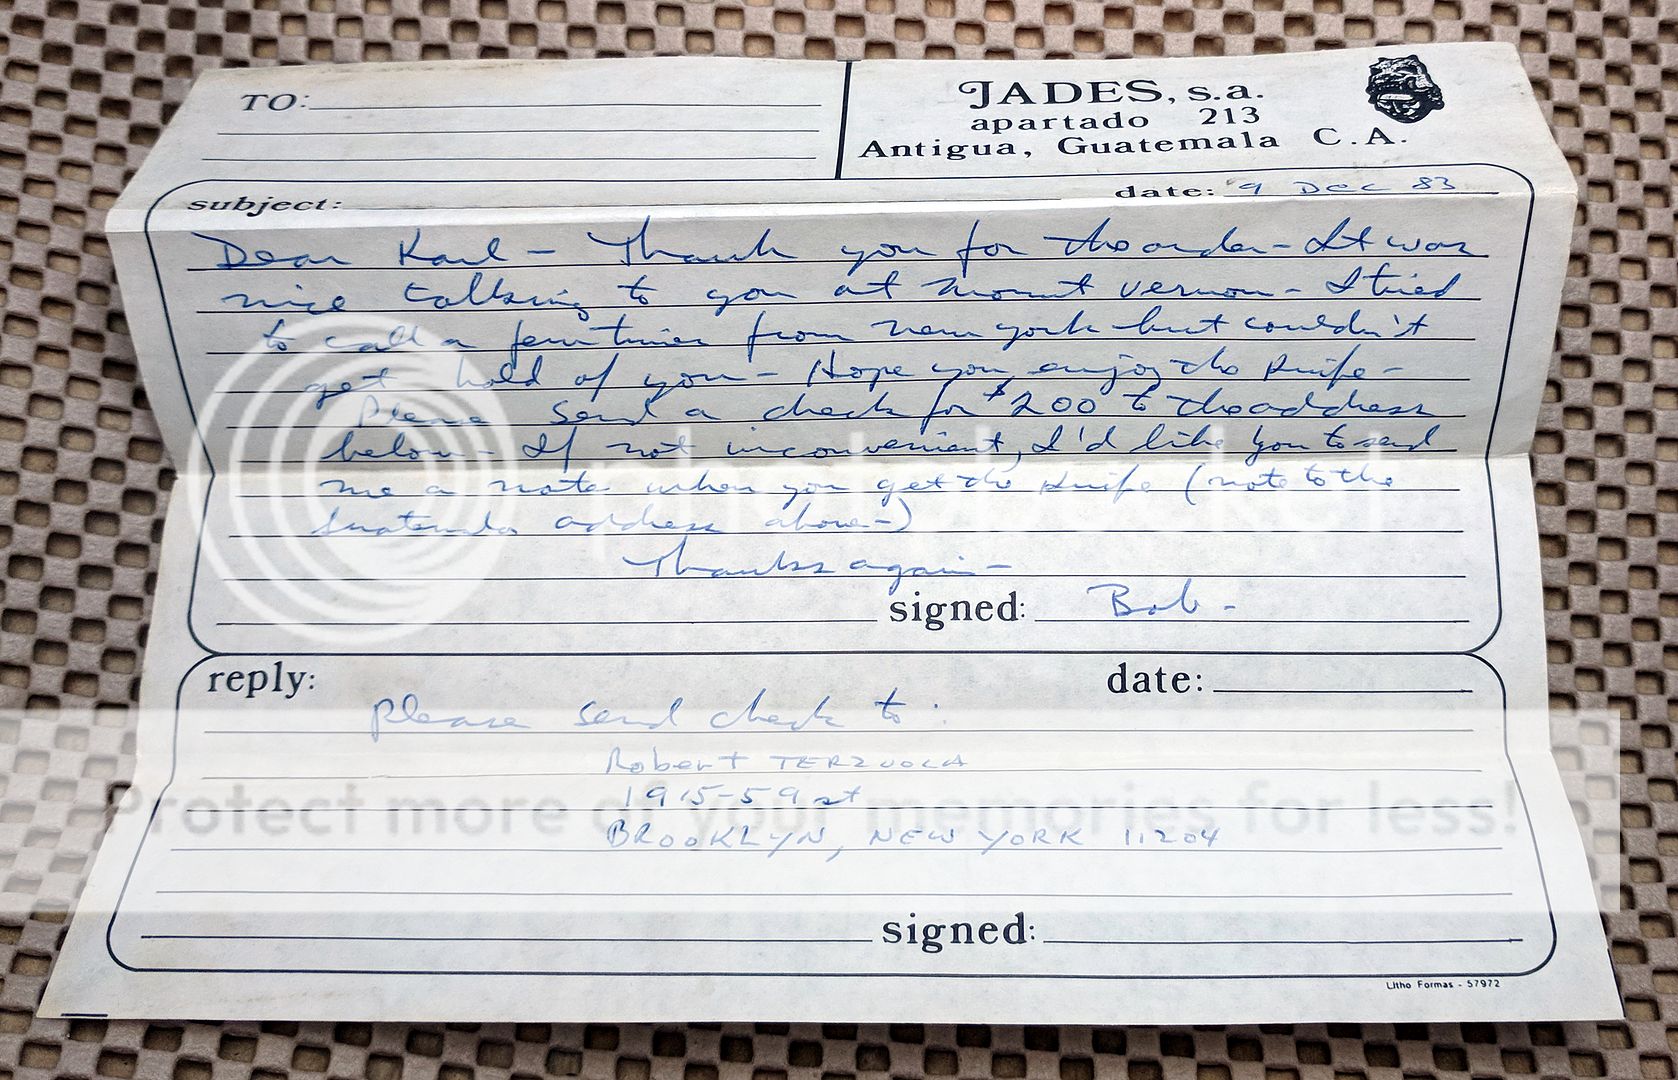 TO:
JADES, s.a.
apartado 213
Antigua, Guatemala C.A.
subject:
date: 9 Dec 83
Dear Karl - Thank you for the order - It was
nice talking to you at Mount Vernon - I tried
to call a few times from New York but couldn't
get hold of you - Hope you enjoy the knife -
Please send a check for $200 to the address
below - If not inconvenient, I'd like you to send
me a note when you get the knife (note to the
Guatemala address above -)
Thanks again -
signed: Bob -
reply:
date:
please send check to:
Robert TERZUOLA
1915-59 st
BROOKLYN, NEW YORK 11204
signed:
Litho Formas - 57972
photobucket
Protect more of your memories for less!